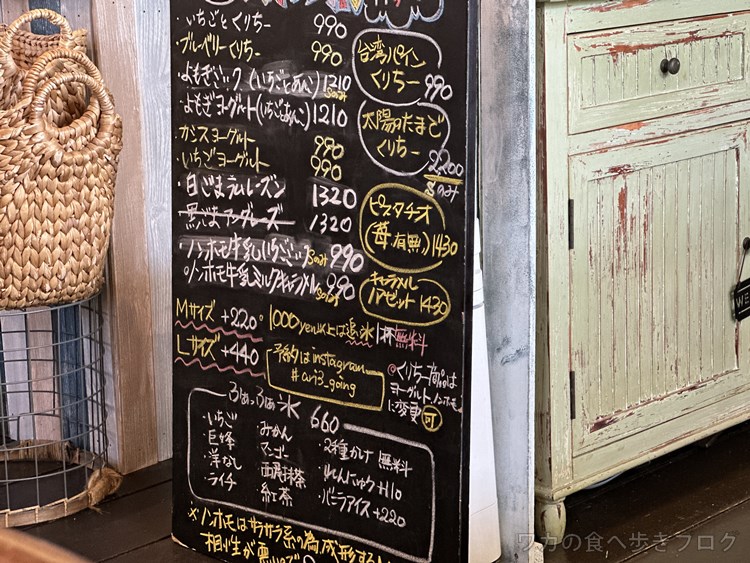 ・いちごとくりちー 990
ブルーベリーくりちー 990
・よもぎミルク(いちごとあんこ) 1210
Sのみ
・よもぎヨーグルト(いちごとあんこ) 1210
カシスヨーグルト 990
・いちごヨーグルト 990
・白ごまラムレーズン 1320
・黒ごまラムレーズ 1320
・ノンホモ牛乳いちごミルク 990
Sのみ
・ノンホモ牛乳ミルクキャラメル 990
Sのみ
台湾パイン
くりちー 990
太陽のたまご
くりちー
2200
Sのみ
ピスタチオ
(苺有無) 1430
キャラメル
ノアゼット 1430
Mサイズ +220
Lサイズ +440
1000yen以上は追氷1杯無料
予約はinstagram
#ari3_going
◎くりちー商品は
ヨーグルト、ノンホモ
に変更可
ふぁっふぁ氷 660
・いちご
・巨峰
・洋なし
・ライチ
・みかん
・マンゴー
・西尾抹茶
・紅茶
・2種かけ 無料
・れんにゅう +110
・バニラアイス +220
※ノンホモはサラサラ系の為、成形する
相性が悪いので
ワカの食べ歩きブログ